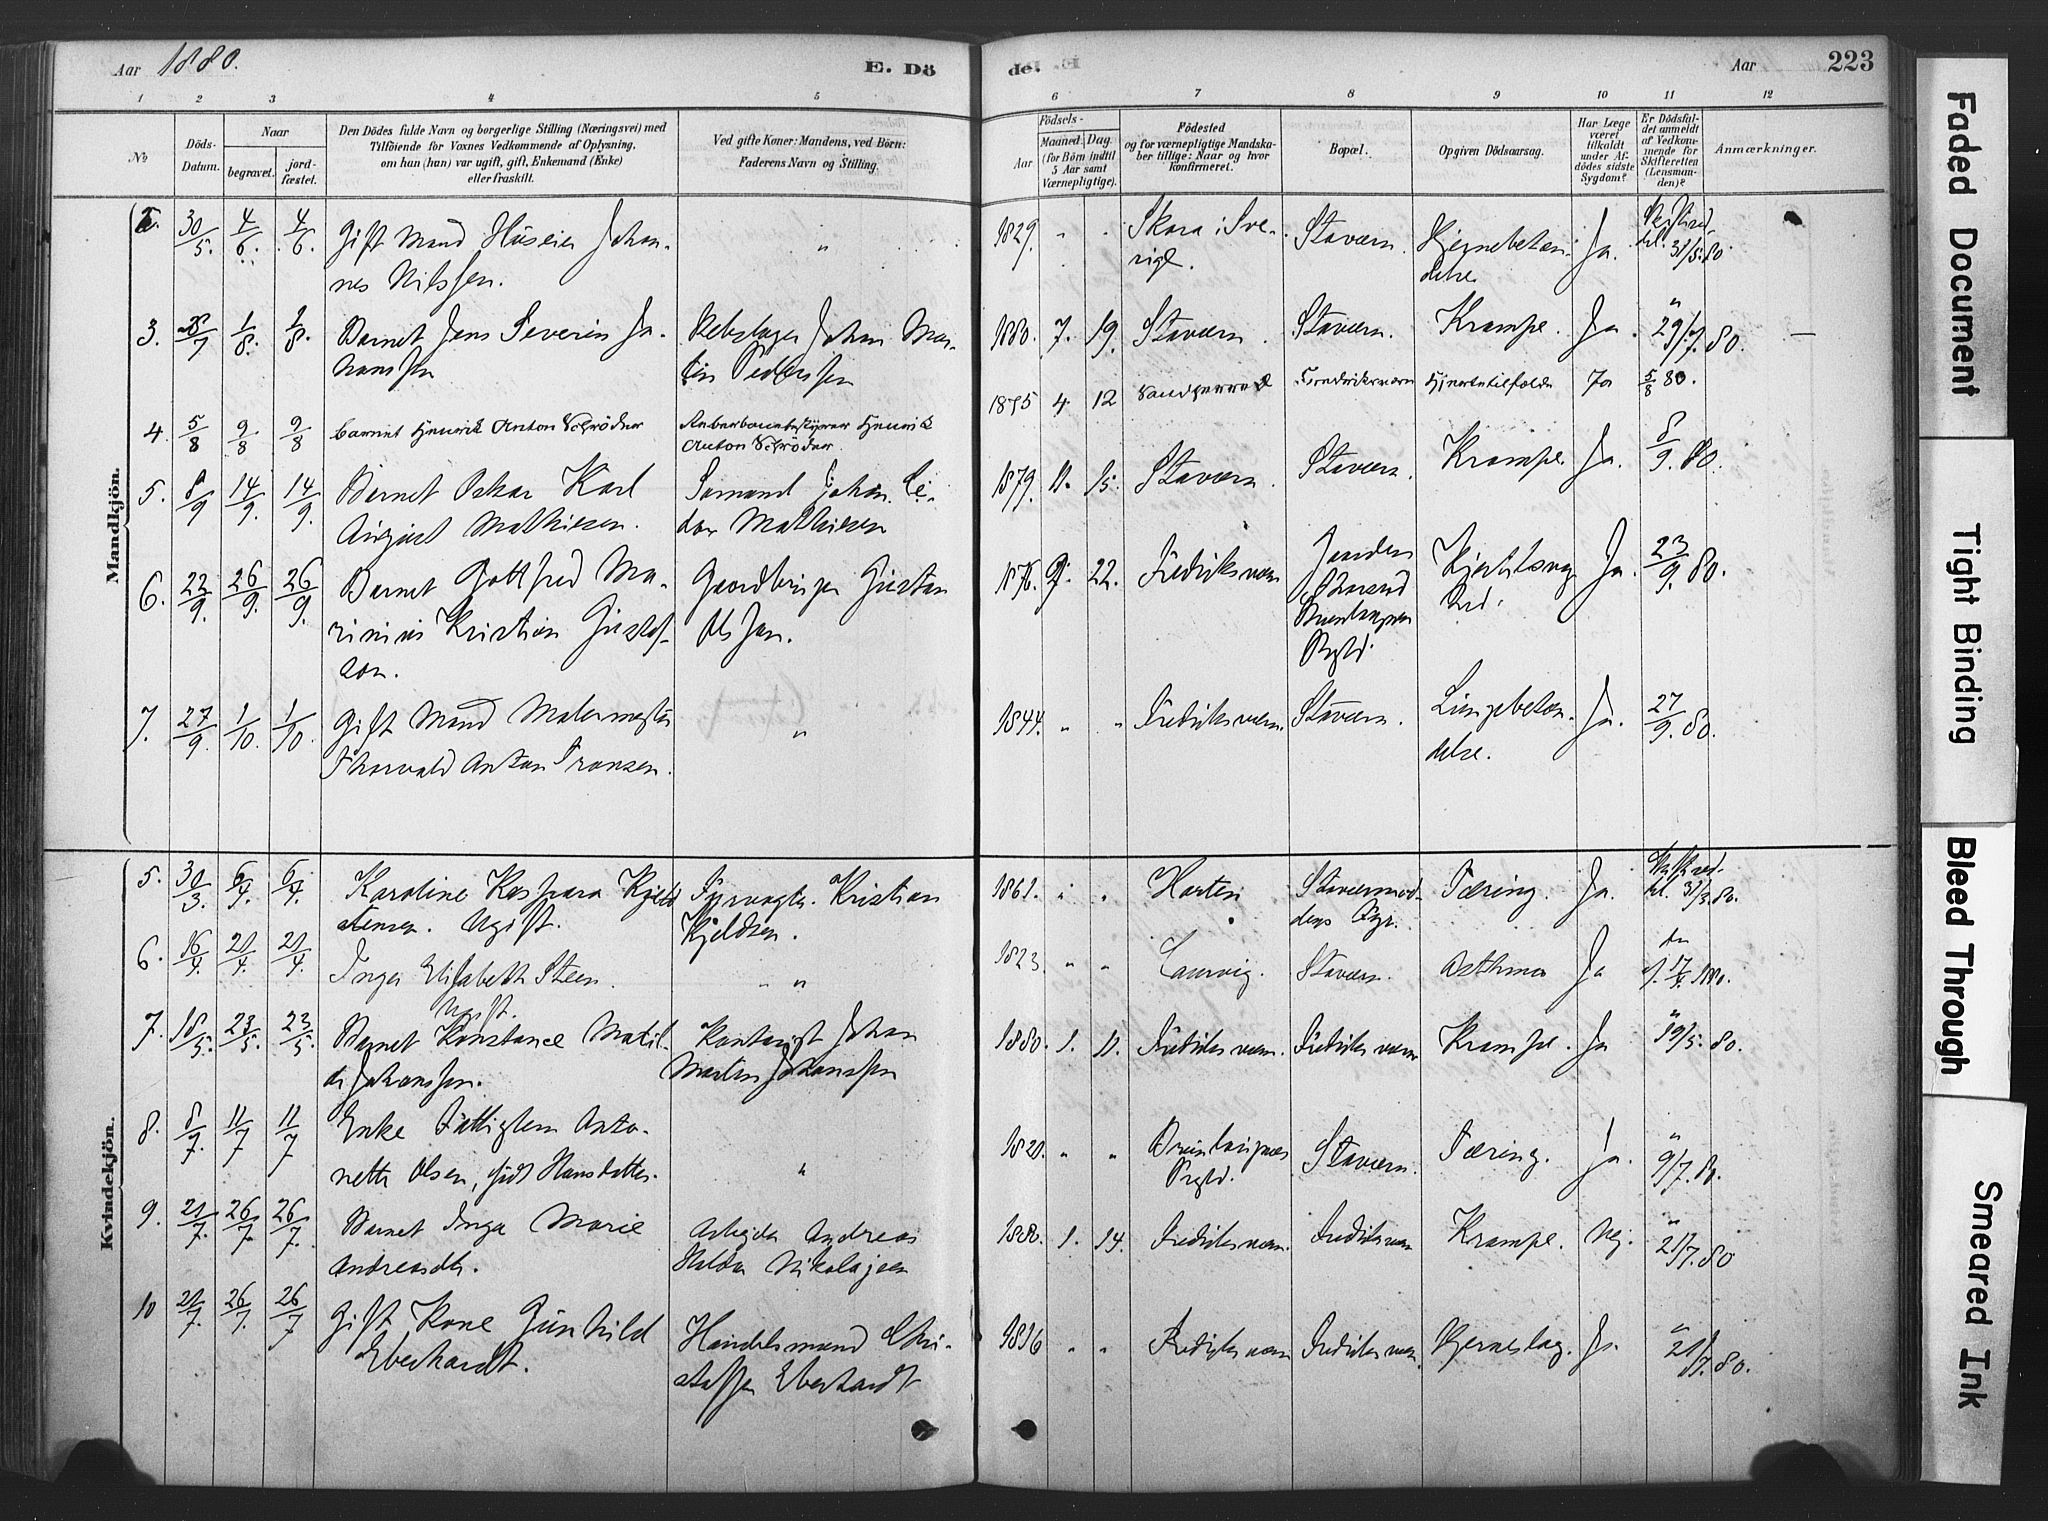 Aar 1880.
E. Dö
de.
Aar
223
1 2 3 4 5 6 7 8 9 10 11 12
No
Döds-Datum.
Naar
begravet.
jord-fæstet.
Den Dödes fulde Navn og borgerlige Stilling (Næringsvei) med
Tilföiende for Voxnes Vedkommende af Oplysning,
om han (hun) var ugift, gift, Enkemand (Enke)
eller fraskilt.
Ved gifte Koner: Mandens, ved Börn:
Faderens Navn og Stilling.
Födsels-
Aar
Maaned Dag.
(for Börn indtil
5 Aar samt
Værnepligtige).
Födested
og for værnepligtige Mandska-
ber tillige: Naar og hvor
konfirmeret.
Bopæl.
Opgiven Dödsaarsag.
Har Læge
været
tilkaldt
under Af-
dödes sidste
Sygdom?
Er Dödsfal-
det anmeldt
af Vedkom-
mende for
Skifteretten
(Lensman-
den)?
Anmærkninger.
Mandkjön.
30/5. 4/6. 4/6. Gift Mand Huseier Johan-
nes Nilssen. " 1829. " " Skara i Sve-
rige. Staværn. Hjernebetæn-
delse. Ja. 31/5.80
3. 1/8. 1/8. Barnet Jens Severin Jo-
hanssen Rebslager Johan Mar-
tin Pederssen 1880. 7. 19. Staværn. Staværn. Krampe. Ja. " 29/7.80. —
4. 5/8 9/8 9/8 barnet Henrik Anton Schrøder
Henrik
Anton Schrøder. 1875 4 12 Fredriksværn Hjertetilfælde Ja 5/8 80.
5. 8/9 14/9. 14/9. Barnet Oskar Karl
August Mathiesen. Sømand Johan
Mathiesen 1879. 11. 15. Staværn. Staværn. Krampe. Ja. 8/9. 80.
6. 22/9. 26/9. 26/9. Barnet Gottfred Ma-
rinius Kristian Gustaf-
son. Gaardbruger Gustav
Olssen. 1876. 9. 22. Fredriksværn
Brunlangnes
Prgld. Ja. 23/9. 80.
7. 27/9. 1/10. 1/10. Gift Mand Malermester
Thorvald Anton Fransen. " 1844. " " Fredriksværn. Staværn. Lungebetæn-
delse. Ja. 27/9. 80.
Kvindekjön.
5. 30/3. 6/4. 6/4. Karoline Kaspara
Ugift. Fyrvogter Kristian
Kjeldsen. 1861. " " Horten Staværnsod-
dens Fyr. Tæring. Ja. 31/3.80.
6. 16/4. 21/4. 21/4. Inger Elisabeth Steen.
Ugift. " " 1823. " " Laurvig. Staværn. Asthma Ja 17/4. 1880.
7. 18/5. 23/5. 23/5. Barnet Konstance Matil-
de Johanssen. Johan
Martin Johanssen 1880. 1. 11. Fredriksværn. Fredriksværn Krampe. Ja " 19/5. 80.
8. 8/7. 11/7 11/7 Enke Fattiglem Anto-
nette Olsen, født Hansdatter. " 1820. " " Brunlangnes
Prgld. Staværn. Tæring. Ja. " 9/7. 80.
9. 21/7. 26/7. 26/7. Barnet Inga Marie
Andreasdtr. Arbeider Andreas
Haldor Nikolajsen 1880. 1. 14. Fredriksværn. Fredriksværn Krampe. Nej. " 21/7. 80
10 21/7. 26/7. 26/7 Gift Kone Gunhild
Eberhardt. Handelsmand Chri-
stoffer Eberhardt 1816 " " Fredriksværn Fredriksværn. Hjerneslag. Ja. " 21/7. 80.
Faded Document
Tight Binding
Bleed Through
Smeared Ink